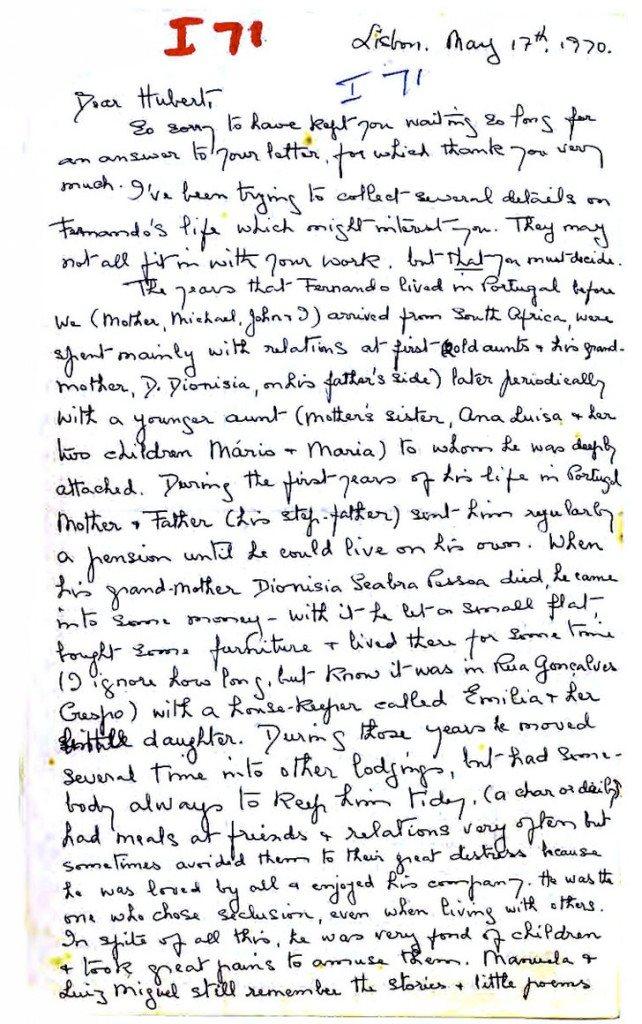 I 71
Lisbon. May 17th, 1970.
I 71
Dear Hubert,
So sorry to have kept you waiting so long for
an answer to your letter, for which thank you very
much. I've been trying to collect several details on
Fernando's life which might interest you. They may
not all fit in with your work, but that you must decide.
The years that Fernando lived in Portugal before
we (Mother, Michael, John & I) arrived from South Africa, were
spent mainly with relations at first (old aunts & his grand-
mother, D. Dionisia, on his father's side) later periodically
with a younger aunt (Mother's sister, Ana Luisa & her
two children Mário & Maria) to whom he was deeply
attached. During the first years of his life in Portugal
Mother & Father (his step-father) sent him regularly
a pension until he could live on his own. When
his grand-mother Dionisia Seabra Pessoa died, he came
into some money - with it he let a small flat,
bought some furniture & lived there for some time
(I ignore how long, but know it was in Rua Gonçalves
Crespo) with a house-keeper called Emilia & her
daughter. During those years he moved
several time into other lodgings, but had some-
body always to keep him tidy, (a char or daily)
had meals at friends & relations very often but
sometimes avoided them to their great distress because
he was loved by all & enjoyed his company. He was the
one who chose seclusion, even when living with others.
In spite of all this, he was very fond of children
& took great pains to amuse them. Manuela &
Luiz Miguel still remember the stories & little poems